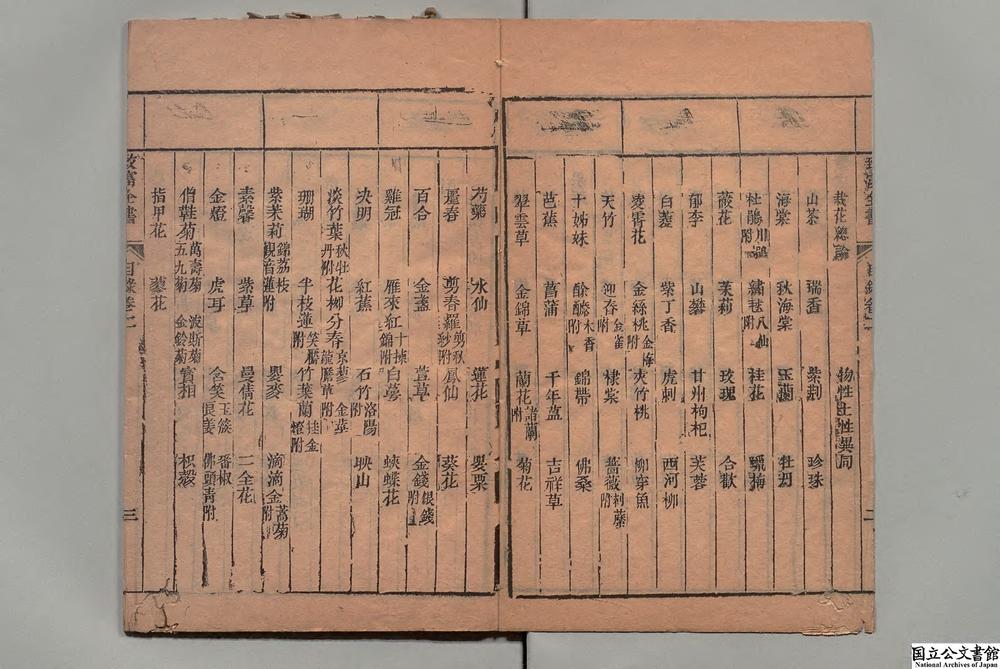 栽花總論 物性土性異同
山茶 瑞香 紫荆 珍珠
海棠 秋海棠 玉蘭 牡丹
杜鵑 川鵑附 繡毬 八仙附 桂花 蠟梅
薇花 茉莉 玫瑰 合歡
郁李 山礬 甘州枸杞 芙蓉
白菱 紫丁香 虎刺 西河柳
凌霄花 金絲桃 金梅附 夾竹桃 柳穿魚
天竹 迎春 金雀附 棣棠 薔薇 刺蘼附
十姊妹 酴醿 木香附 錦帶 佛桑
芭蕉 菖蒲 千年蒀 吉祥草
翠雲草 金錦草 蘭花 諸蘭附 菊花
二
芍藥 水仙 蓮花 罌粟
麗春 剪春羅 剪秋紗附 鳳仙 葵花
百合 金盞 萱草 金錢 銀錢附
雞冠 雁來紅 十樣錦附 白萼 蛺蝶花
决明 紅蕉 石竹 洛陽附 映山
淡竹葉 秋牡丹附 花柳分春
珊瑚 半枝蓮附 竹葉蘭
紫茉莉 錦荔枝 觀音蓮附 罌麥 滴滴金 蒿菊附
素馨 紫草 曼倩花 二全花
金燈 虎耳 含笑 玉簪 良姜 番椒 佛頭青附
僧鞋菊 萬壽菊 五九菊 波斯菊 金鈴菊 實相 枳殼
指甲花 蓼花
致富全書
目錄卷之一
三
国立公文書館
National Archives of Japan